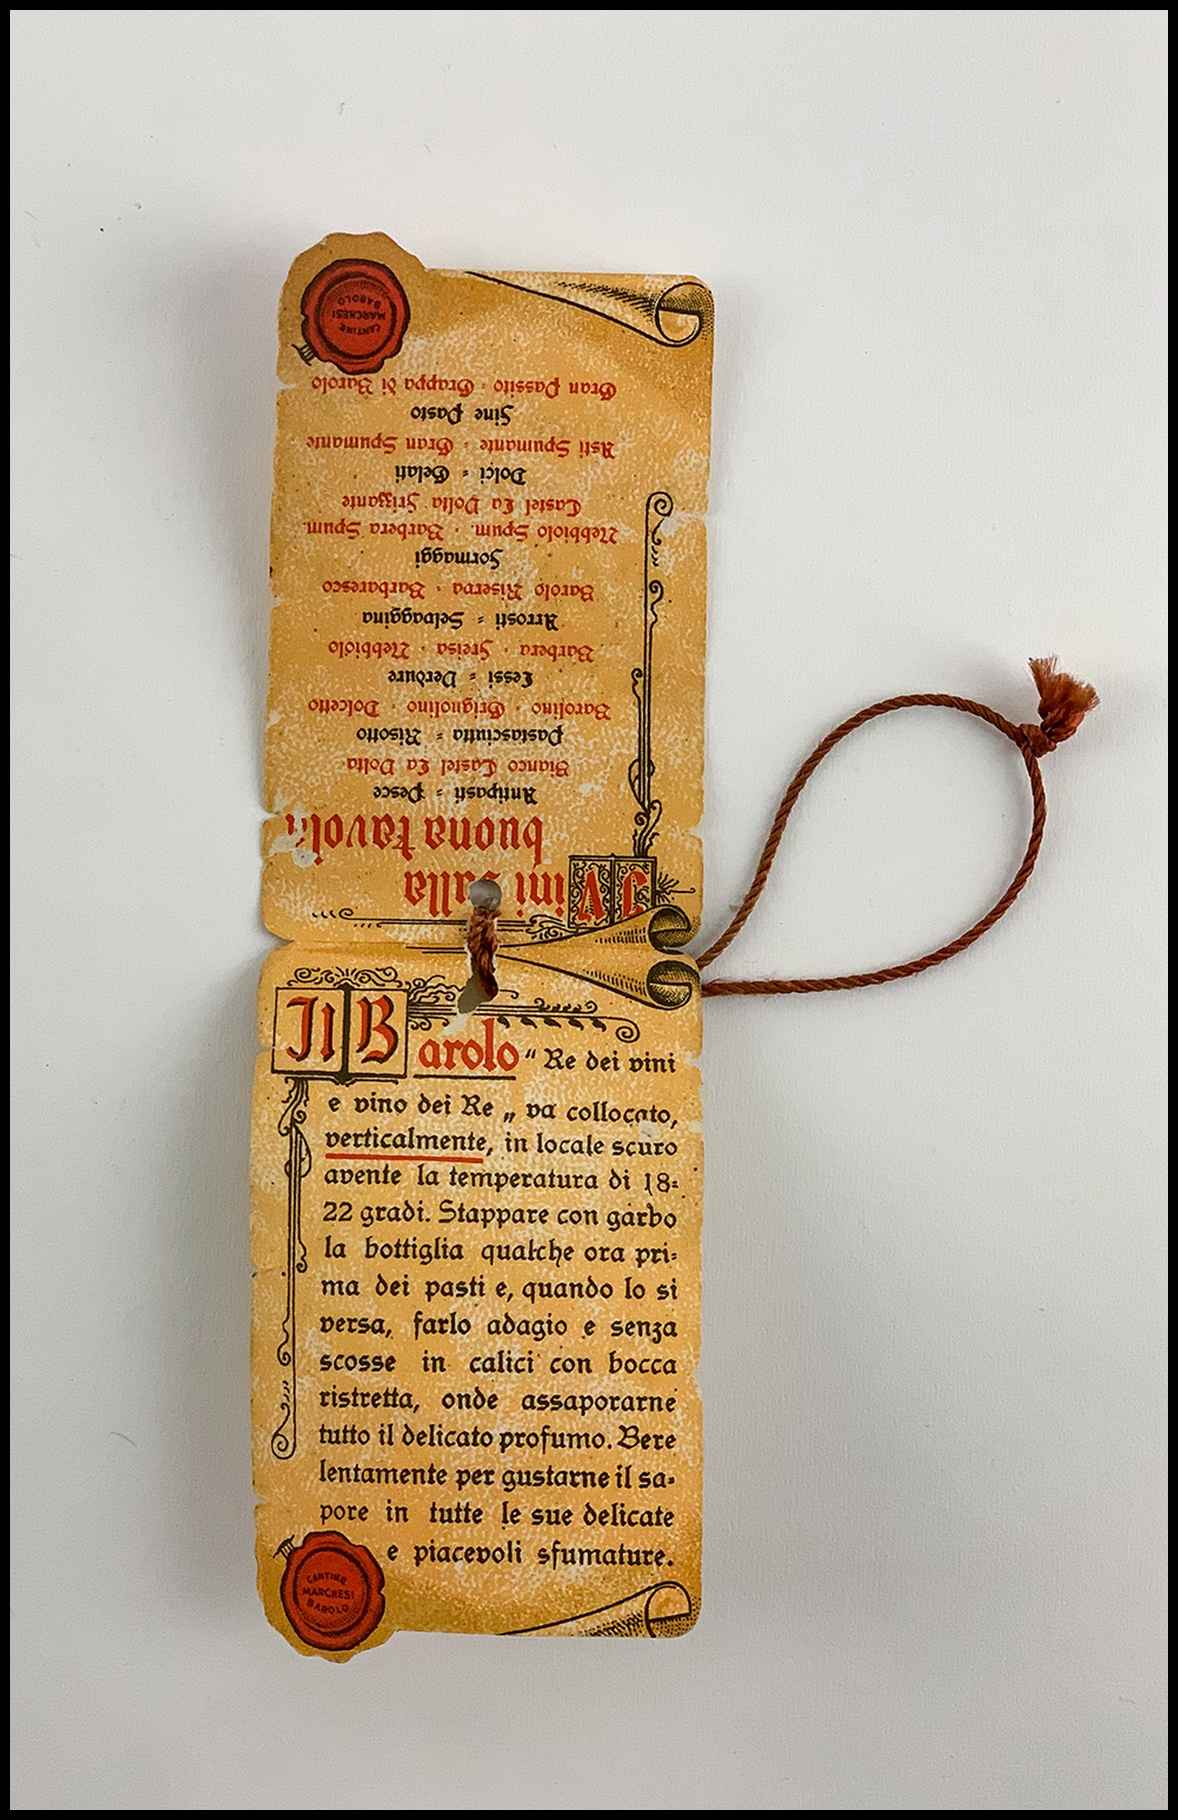 I Vini sulla
buona tavola
Antipasti = Pesce
Bianco Castel La Volta
Pastasciutta = Risotto
Barolino · Grignolino · Dolcetto
Lessi = Verdure
Barbera · Freisa · Nebbiolo
Arrosti = Selvaggina
Barolo Riserva · Barbaresco
Formaggi
Nebbiolo Spum. · Barbera Spum.
Castel La Volta Frizzante
Dolci = Gelati
Asti Spumante = Gran Spumante
Fine Pasto
Gran Passito · Grappa di Barolo
CANTINE
MARCHESI
BAROLO
Il Barolo “ Re dei vini
e vino dei Re „ va collocato,
verticalmente, in locale scuro
avente la temperatura di 18=
22 gradi. Stappare con garbo
la bottiglia qualche ora pri=
ma dei pasti e, quando lo si
versa, farlo adagio e senza
scosse in calici con bocca
ristretta, onde assaporarne
tutto il delicato profumo. Bere
lentamente per gustarne il sa=
pore in tutte le sue delicate
e piacevoli sfumature.
CANTINE
MARCHESI
BAROLO